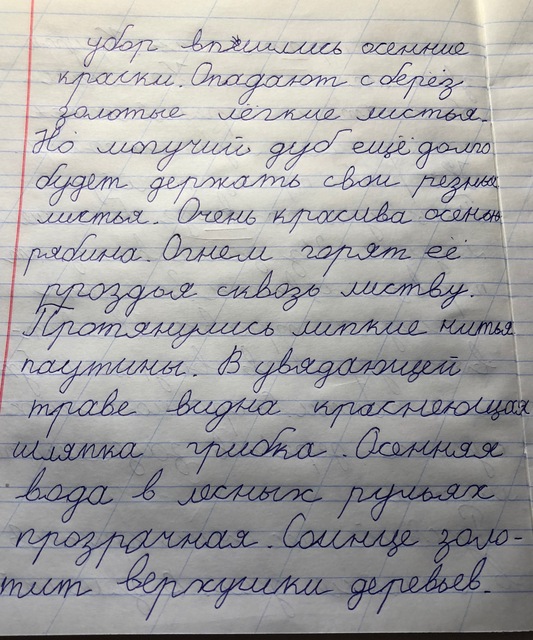 убор вплились осенние
краски. Опадают с берёз
золотые лёгкие листья.
Но могучий дуб ещё долго
будет держать свои резные
листья. Очень красива осенью
рябина. Огнем горят её
гроздья сквозь листву.
Протянулись липкие нитья
паутины. В увядающей
траве видна краснеющая
шляпка грибка. Осенняя
вода в лесных ручьях
прозрачная. Солнце золо-
тит верхушки деревьев.